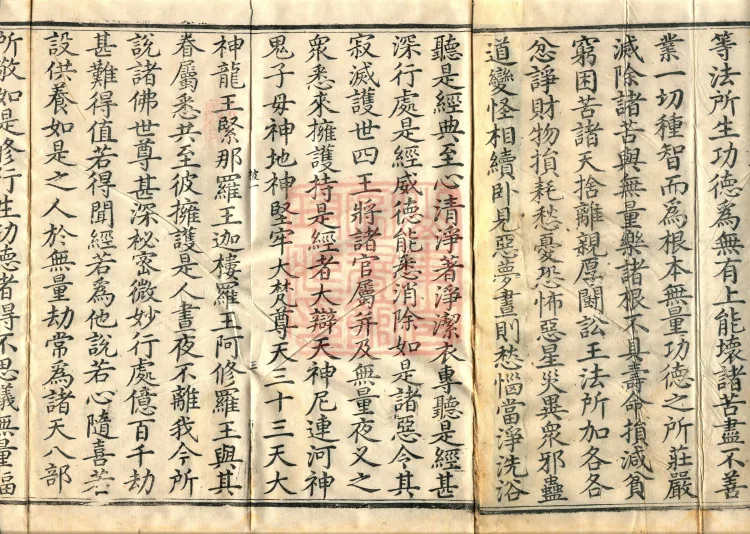 等法所生功德爲無有上能壞諸苦盡不善
業一切種智而爲根本無量功德之所莊嚴
滅除諸苦與無量樂諸根不具壽命損減貧
窮困苦諸天捨離親厚鬬訟王法所加各各
忿諍財物損耗愁憂恐怖惡星災異衆邪蠱
道變怪相續卧見惡夢晝則愁惱當淨洗浴
聽是經典至心清淨著淨潔衣專聽是經甚
深行處是經威德能悉消除如是諸惡令其
寂滅護世四王將諸官屬并及無量夜叉之
衆悉來擁護持是經者大辯天神尼連河神
鬼子母神地神堅牢大梵尊天三十三天大
神龍王緊那羅王迦樓羅王阿修羅王與其
眷屬悉共至彼擁護是人晝夜不離我今所
說諸佛世尊甚深祕密微妙行處億百千劫
甚難得值若得聞經若爲他說若心隨喜若
設供養如是之人於無量劫常爲諸天八部
所敬如是修行生功德者得不思議無量福